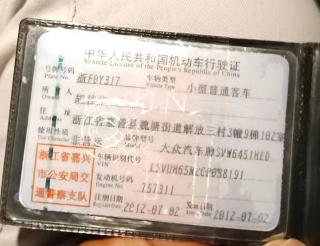 中华人民共和国机动车行驶证
Vehicle License of the People's Republic of China
号牌号码 浙F9Y317 车辆类型 小型普通客车
Plate No. Vehicle Type
所有人
Owner
住址 浙江省嘉善县魏塘街道解放三村3幢9梯102室
Address
使用性质 大众汽车牌SVW6451HED
Use Character
浙江省嘉兴
市公安局交
通警察支队
车辆识别代号
VIN
发动机号码 757311
Engine No.
注册日期 2012-07-02 发证日期 2012-07-02
Register Date Issue Date